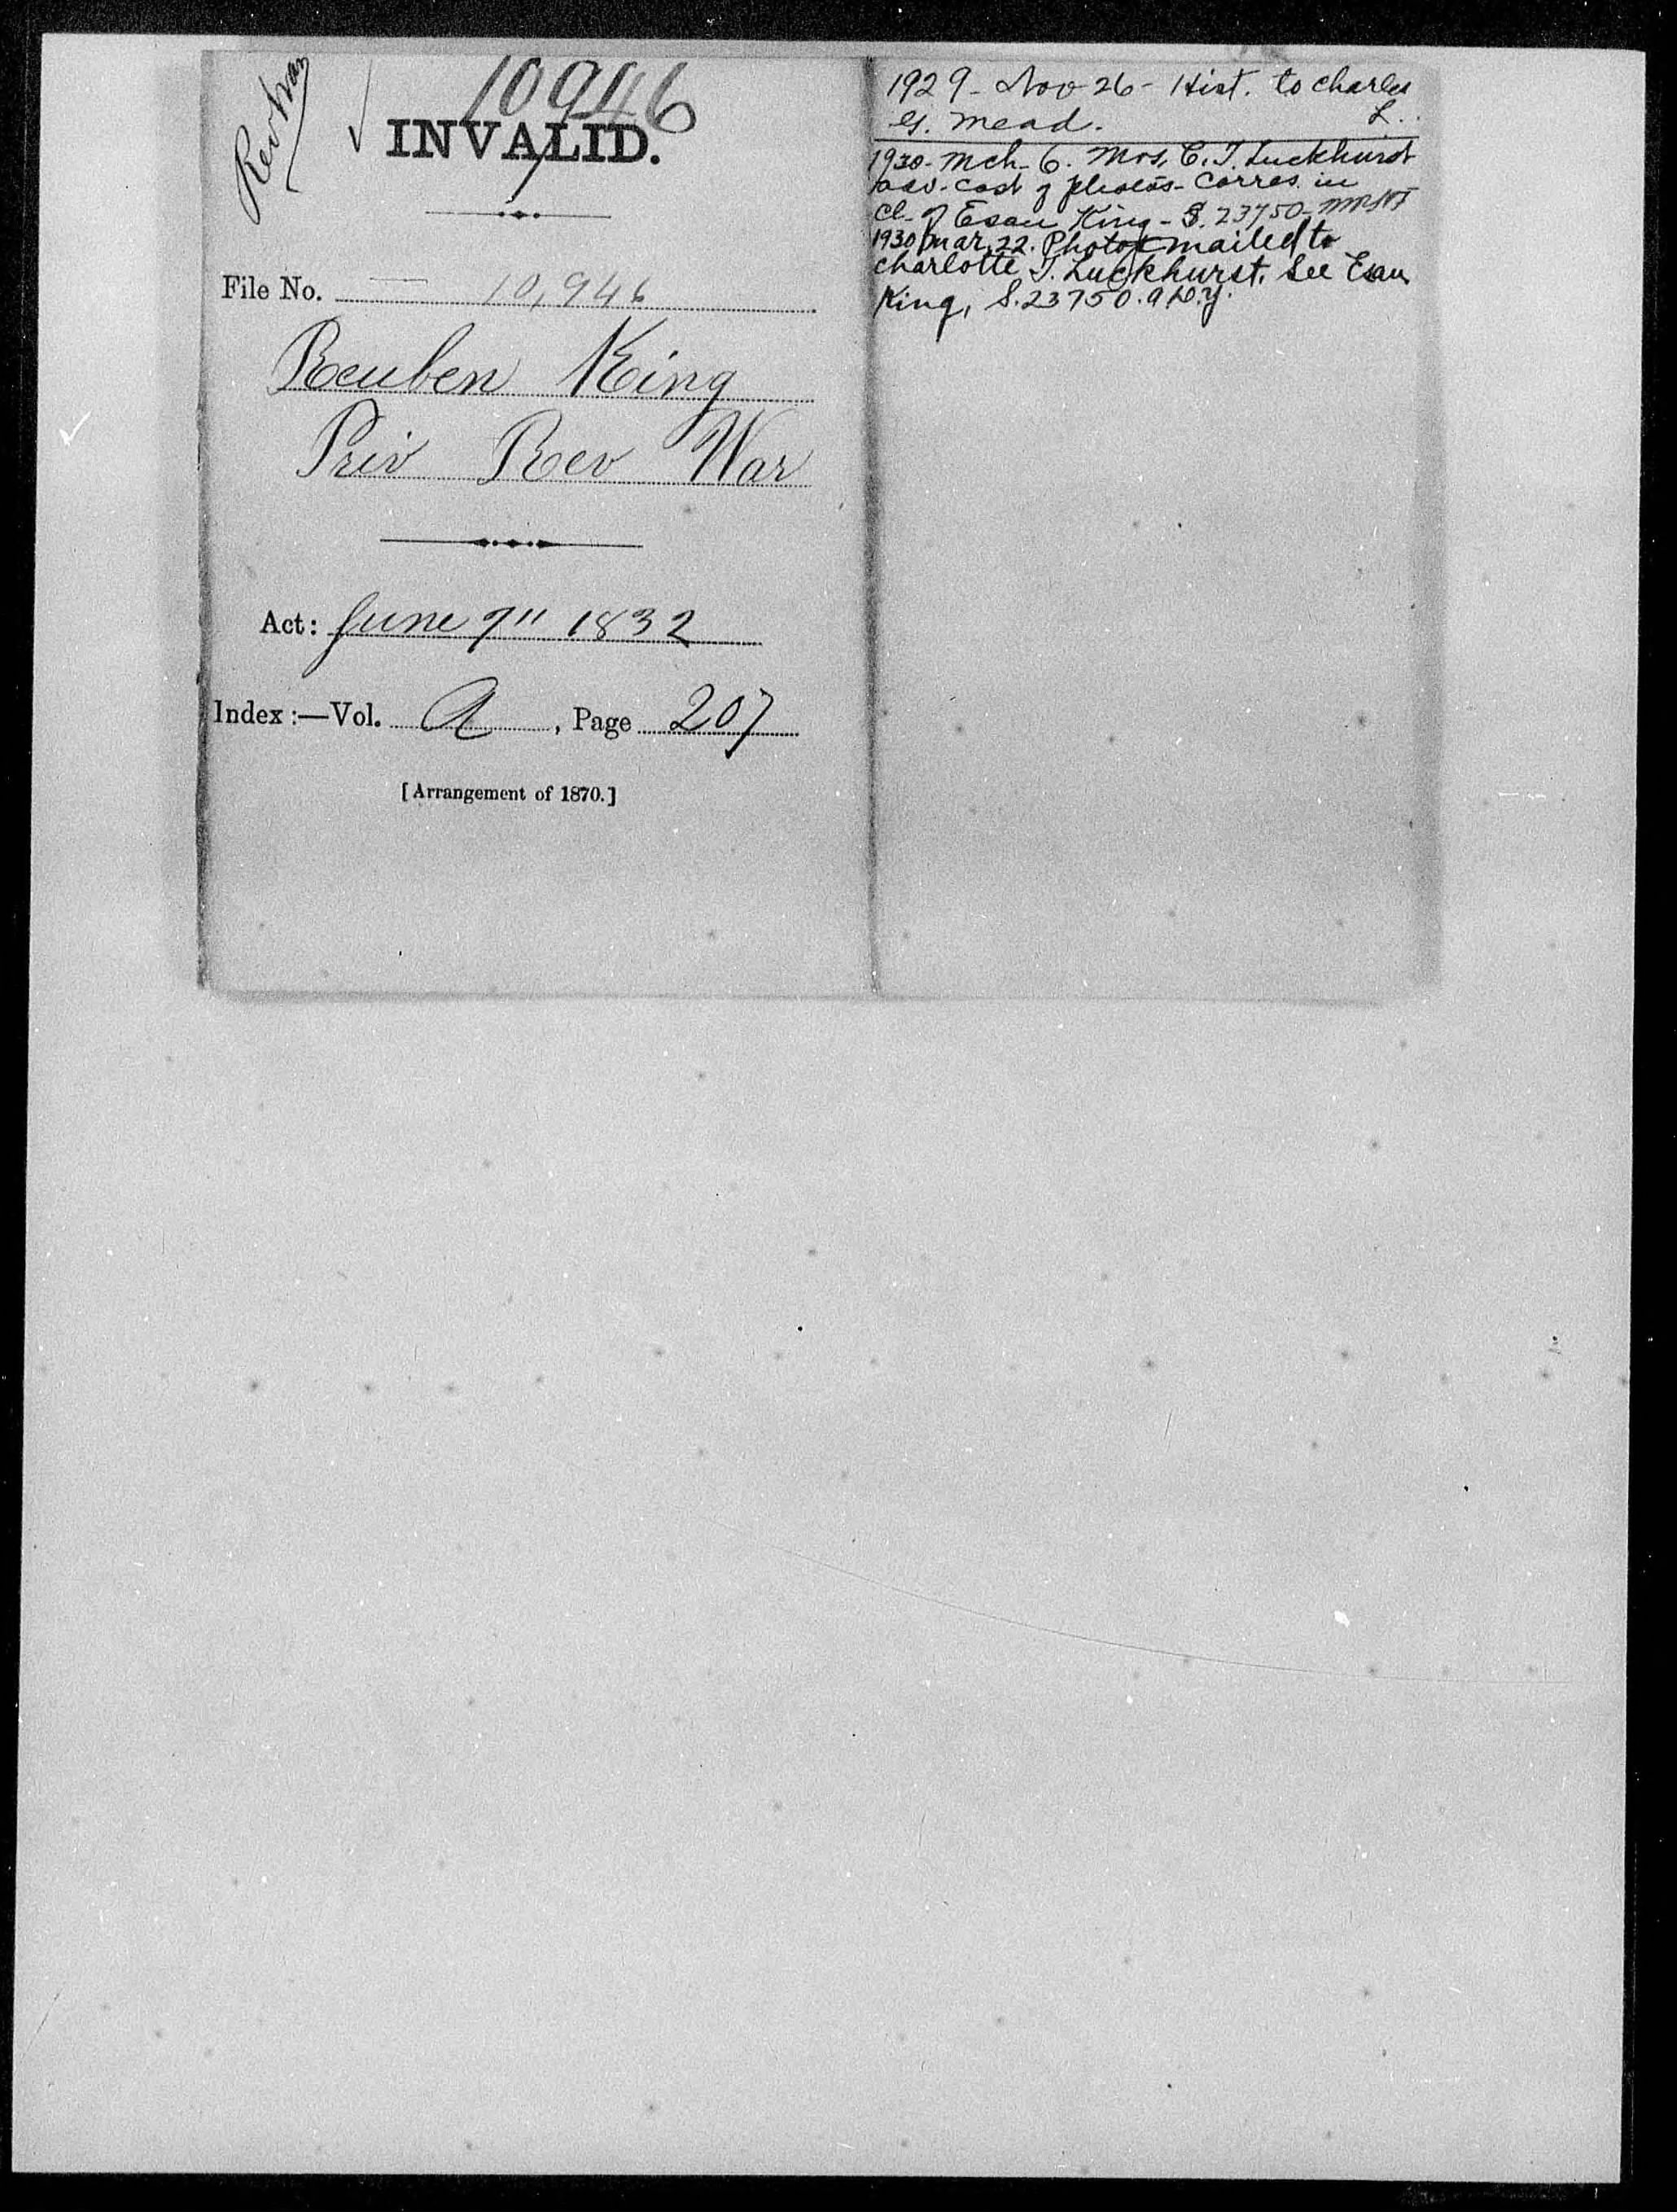 Rev War
10946
INVALID.
File No. 10,946
Reuben King
Priv Rev War
Act: June 7" 1832
Index:—Vol. A, Page 207
[Arrangement of 1870.]
1929 - Nov 26 - Hist. to Charles
G. Mead. L.
1930 - Mch - 6. Mrs. C. T. Luckhurst
adv. cost of photos - corres. in
cl. of Esau King - S. 23750 -
1930 Mar. 22. Photos mailed to
Charlotte T. Luckhurst. See Esau
King, S. 23750.